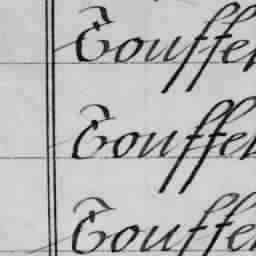 Touffe
Touffe
Touffe